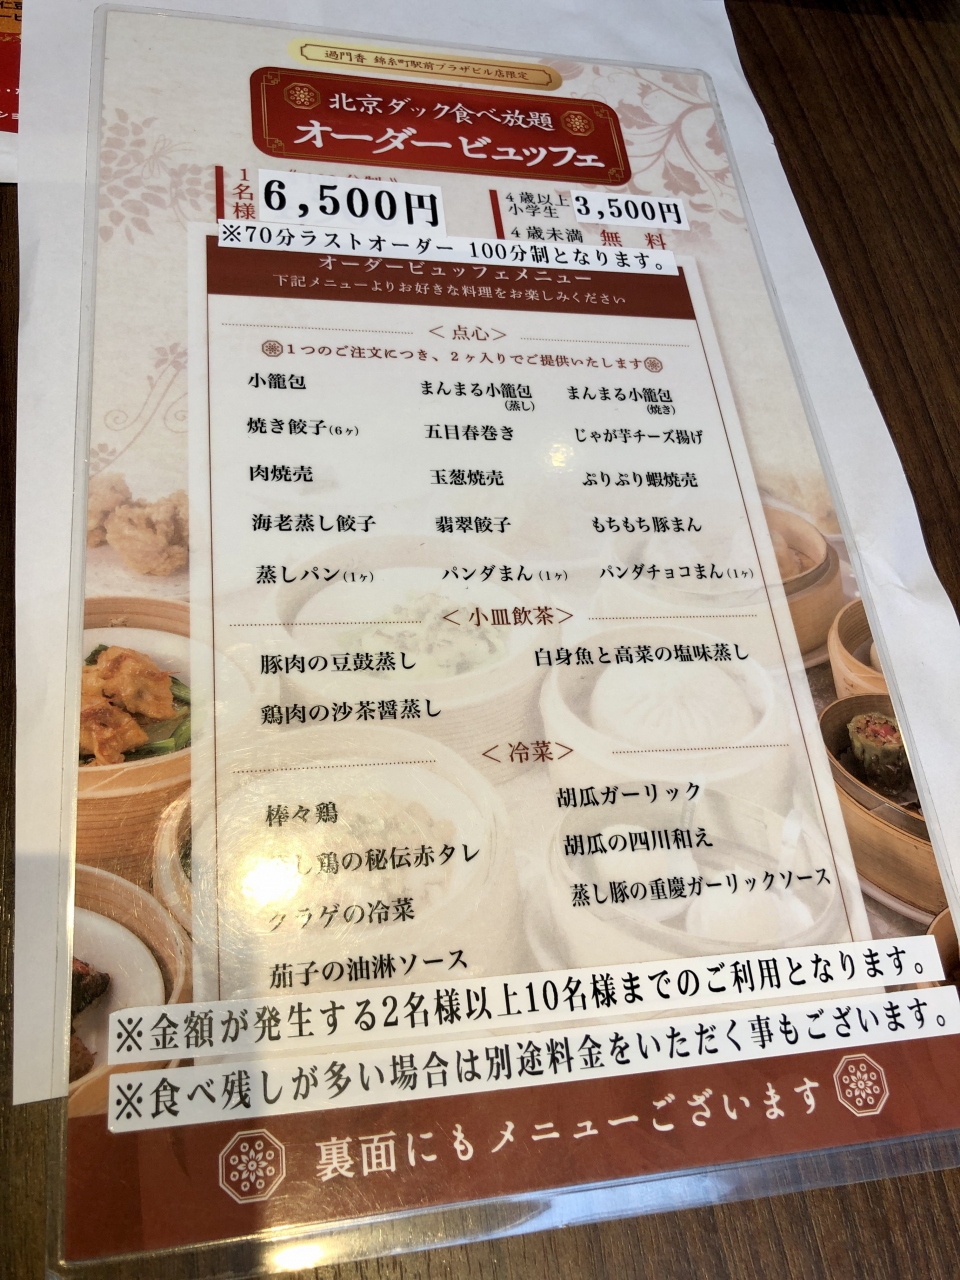 過門香 錦糸町駅前プラザビル店限定
北京ダック食べ放題
オーダービュッフェ
1名様 6,500円
4歳以上小学生 3,500円
4歳未満 無料
※70分ラストオーダー 100分制となります。
オーダービュッフェメニュー
下記メニューよりお好きな料理をお楽しみください
＜点心＞
1つのご注文につき、2ヶ入りでご提供いたします
小籠包 まんまる小籠包(蒸し) まんまる小籠包(焼き)
焼き餃子(6ヶ) 五目春巻き じゃが芋チーズ揚げ
肉焼売 玉葱焼売 ぷりぷり蝦焼売
海老蒸し餃子 翡翠餃子 もちもち豚まん
蒸しパン(1ヶ) パンダまん(1ヶ) パンダチョコまん(1ヶ)
＜小皿飲茶＞
豚肉の豆鼓蒸し 白身魚と高菜の塩味蒸し
鶏肉の沙茶醤蒸し
＜冷菜＞
棒々鶏 胡瓜ガーリック
し鶏の秘伝赤タレ 胡瓜の四川和え
クラゲの冷菜 蒸し豚の重慶ガーリックソース
茄子の油淋ソース
※金額が発生する2名様以上10名様までのご利用となります。
※食べ残しが多い場合は別途料金をいただく事もございます。
裏面にもメニューございます